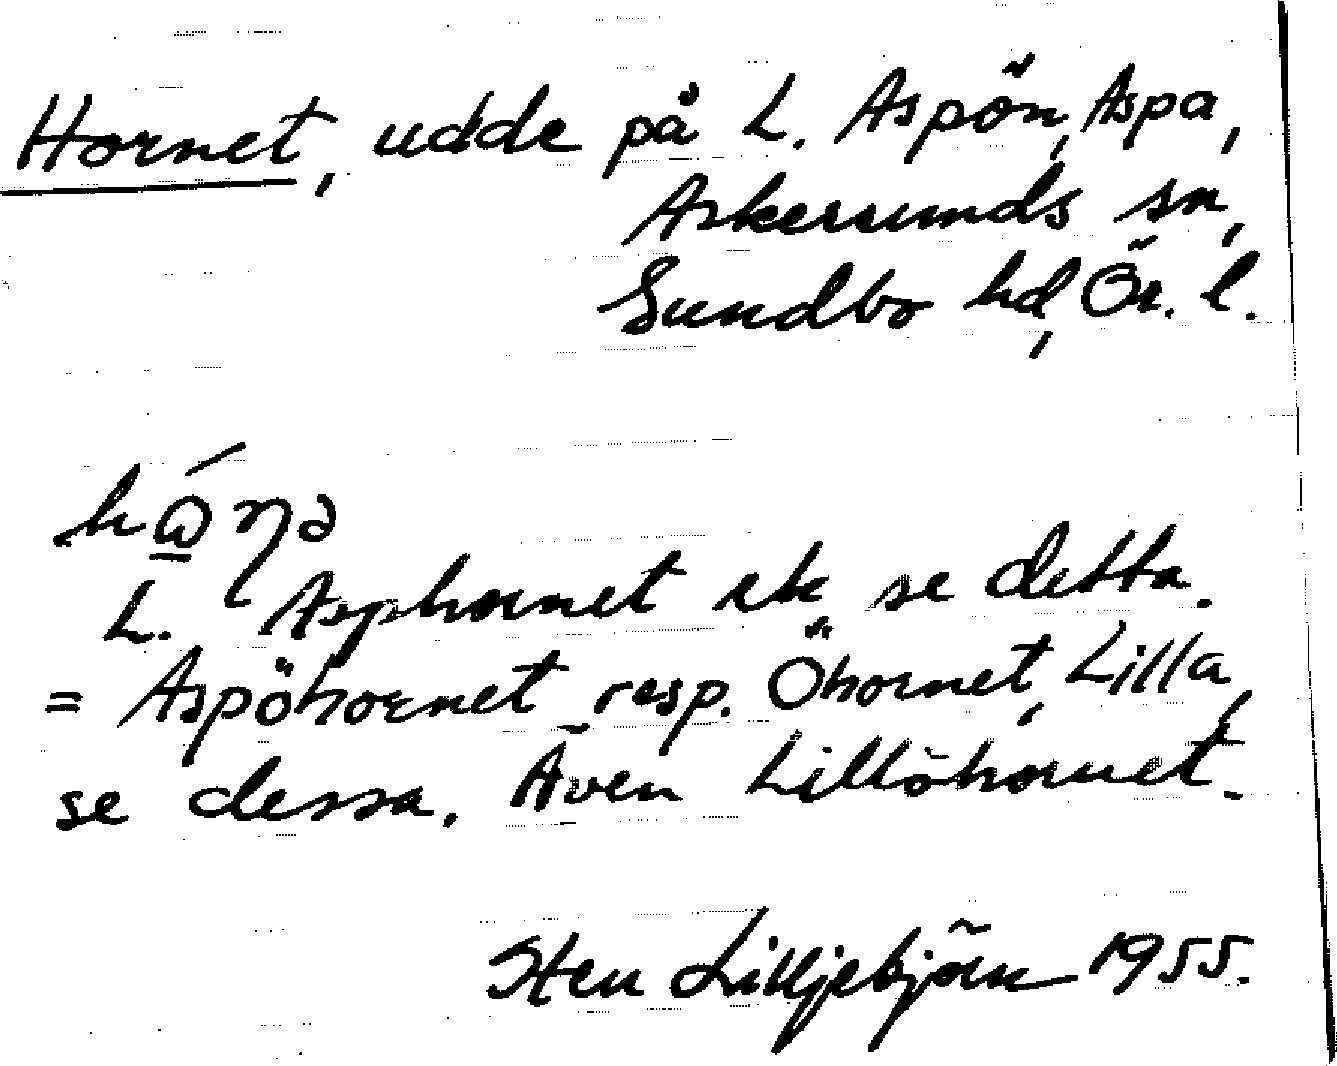 Hornet, udde på L. Aspön, Aspa,
Askersunds sn,
Sundbo hd, Ör. l.
L. Asphornet rk se detta.
= Aspöhornet resp. Öhornet, Lilla,
se dessa. Även Lillöhornet.
Sten Lilljebjörn 1955.